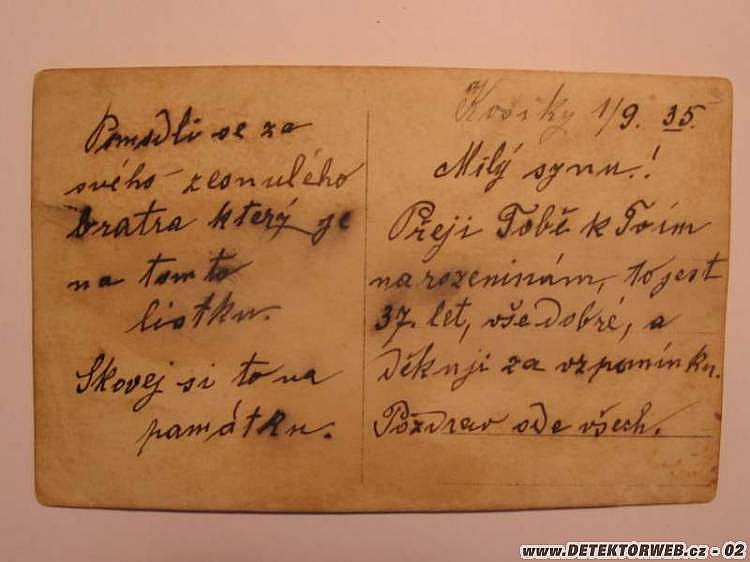 Pomodli se za
svého zesnulého
bratra který je
na tom to
lístku.
Skovej si to na
památku.
Kosiky 1/9. 35.
Milý synu.!
Přeji Tobě k Tvím
narozeninám, to jest
37. let, vše dobré, a
děkuji za vzpomínku.
Pozdrav ode všech.
www.DETEKTORWEB.cz - 02